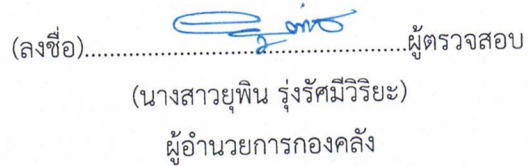 (ลงชื่อ)......................................................ผู้ตรวจสอบ
(นางสาวยุพิน รุ่งรัศมีวิริยะ)
ผู้อำนวยการกองคลัง